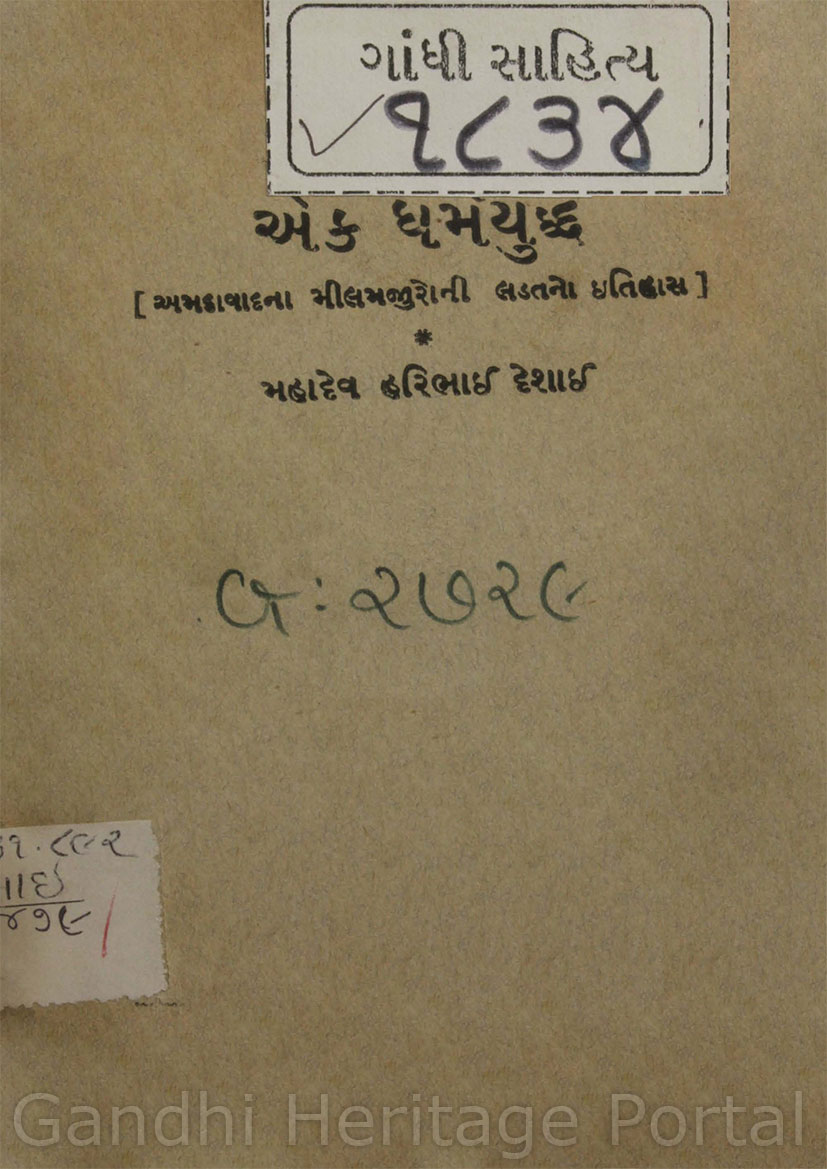 ગાંધી સાહિત્ય
૧૮૩૪
એક ધર્મયુદ્ધ
[ અમદાવાદના મીલમજૂરોની લડતનો ઇતિહાસ ]
*
મહાદેવ હરિભાઈ દેશાઈ
: ૨૭૨૯
૧.૮૯૨
ાઇ
૪૭૯
Gandhi Heritage Portal